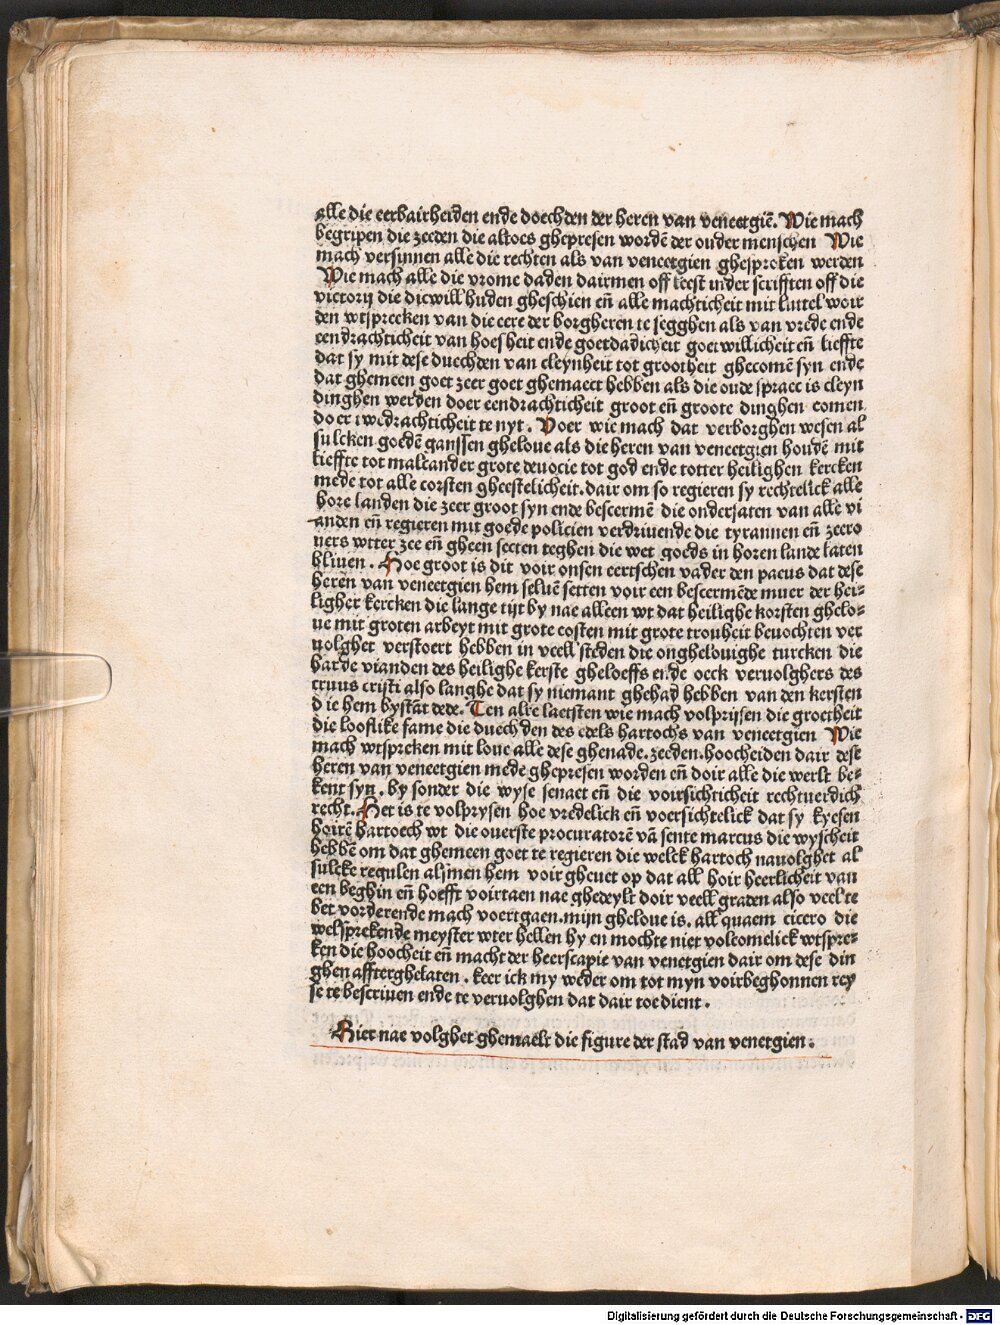 alle die eerbairheiden ende doechden der heren van veneetgiē. Wie mach
begripen die zeeden die altoes ghepresen wordē der ouder menschen Wie
mach versinnen alle die rechten als van veneetgien ghespreken werden
Wie mach alle die vrome daden dairmen off leest inder scrifften off die
victorij die dicwill huden gheschien eñ alle machticheit mit luttel woir
den wtspreeken van die eere der borgheren te segghen als van vrede ende
eendrachticheit van hoesheit ende goetdadicheit goetwillicheit eñ lieffte
dat sy mit dese duechden van cleynheit tot grootheit ghecomē syn ende
dat ghemeen goet zeer goet ghemaect hebben als die oude spraec is cleyn
dinghen werden doer eendrachticheit groot eñ groote dinghen comen
doer twedrachticheit te nyt. Voer wie mach dat verborghen wesen al
sulcken goedē ganssen gheloue als die heren van veneetgien houdē mit
lieffte tot malcander grote deuocie tot god ende totter heilighen kercken
mede tot alle corsten gheestelicheit. dair om so regieren sy rechtelick alle
hore landen die zeer groot syn ende bescermē die ondersaten van alle vi
anden eñ regieren mit goede policien verdriuende die tyrannen eñ zeero
uers wtter zee eñ gheen secten teghen die wet goeds in horen lande laten
bliuen. Hoe groot is dit voir onsen eertschen vader den paeus dat dese
heren van veneetgien hem seluē setten voir een beschermēde muer der hei-
ligher kercken die lange tijt by nae alleen wt dat heilighe korsten ghelo-
ue mit groten arbeyt mit grote costen mit grote trouheit beuochten ver
uolghet verstoert hebben in veell steden die onghelouighe turcken die
harde vianden des heilighe kerste gheloeffs ende oeck veruolghers des
cruus cristi also langhe dat sy niemant ghehad hebben van den kersten
die hem bystāt dede. Ten alre laetsten wie mach volprijsen die groetheit
die looflike fame die duechden des edels hartochs van veneetgien Wie
mach wtspreken mit loue alle dese ghenade. zeeden. hoocheiden dair dese
heren van veneetgien mede ghepresen worden eñ doir alle die werlt be-
kent syn. by sonder die wyse senaet eñ die voirsichticheit rechtuerdich
recht. Het is te volprysen hoe vredelick eñ voersichtelick dat sy kyesen
hoirē hartoech wt die ouerste procuratorē vā sente marcus die wyscheit
hebbē om dat ghemeen goet te regieren die welck hartoch nauolghet al
sulcke regulen alsmen hem voir gheuet op dat all hoir heerlicheit van
een beghin eñ hoefft voirtaen nae ghedeylt doir veell graden also veel te
bet vorderende mach voertgaen. mijn gheloue is. all quaem cicero die
welsprekende meyster wter hellen hy en mochte niet volcomelick wtspre-
ken die hoocheit eñ macht der heerscapie van venetgien dair om dese din
ghen affterghelaten. keer ick my weder om tot myn voirbeghonnen rey
se te bescriuen ende te veruolghen dat dair toe dient.
Hier nae volghet ghemaelt die figure der stad van venetgien.
Digitalisierung gefördert durch die Deutsche Forschungsgemeinschaft - DFG